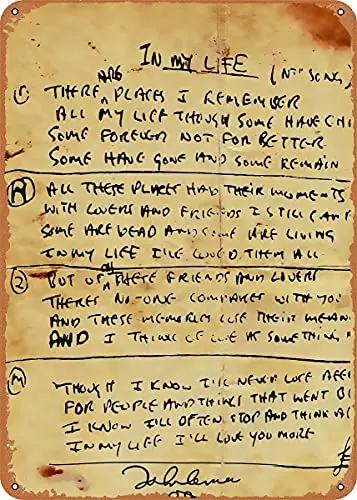 IN MY LIFE
ARE
1 THERE ^ PLACES I REMEMBER
ALL MY LIFE THOUGH SOME HAVE CH
SOME FOREVER NOT FOR BETTER
SOME HAVE GONE AND SOME REMAIN
M ALL THESE PLACES HAD THEIR MOMENTS
WITH LOVERS AND FRIENDS I STILL CAN
SOME ARE DEAD AND SOME ARE LIVING
IN MY LIFE I'VE LOVED THEM ALL
2 BUT OF ^ THESE FRIENDS AND LOVERS
THERES NO-ONE COMPARES WITH YOU
AND THESE MEMORIES LOSE THEIR MEAN
AND I THINK OF LOVE AS SOMETHING
M THOUGH I KNOW I'LL NEVER LOSE AFFE
FOR PEOPLE AND THINGS THAT WENT B
I KNOW I'LL OFTEN STOP AND THINK A
IN MY LIFE I'LL LOVE YOU MORE